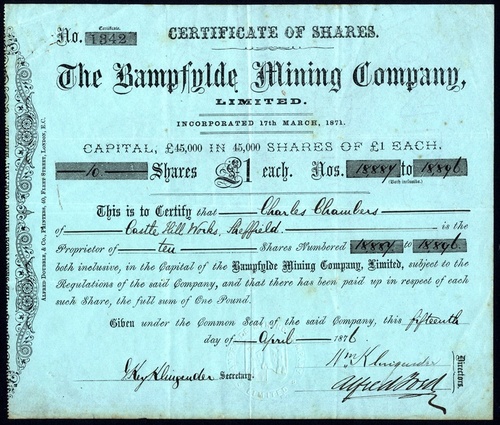 Certificate
No. 1342 CERTIFICATE OF SHARES.
The Bampfylde Mining Company,
LIMITED.
INCORPORATED 17TH MARCH, 1871.
CAPITAL, £45,000 IN 45,000 SHARES OF £1 EACH.
10. Shares £1 each. Nos. 18887 to 18896
(Both inclusive.)
This is to Certify that Charles Chambers
of Castle Hill Works, Sheffield. is the
Proprietor of ten Shares Numbered 18887 to 18896
both inclusive, in the Capital of the Bampfylde Mining Company, Limited, subject to the
Regulations of the said Company, and that there has been paid up in respect of each
such Share, the full sum of One Pound.
Given under the Common Seal of the said Company, this fifteenth
day of April 1876
Wm Klingender
Klingender Secretary.
Alfred Ford
Directors.
ALFRED BOURRER & CO., PRINTERS, 60, FLEET STREET, LONDON, E.C.